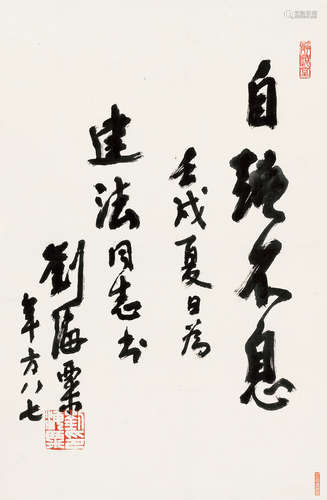 自強不息
壬戌夏日為
建法同志书
劉海粟
年方八七